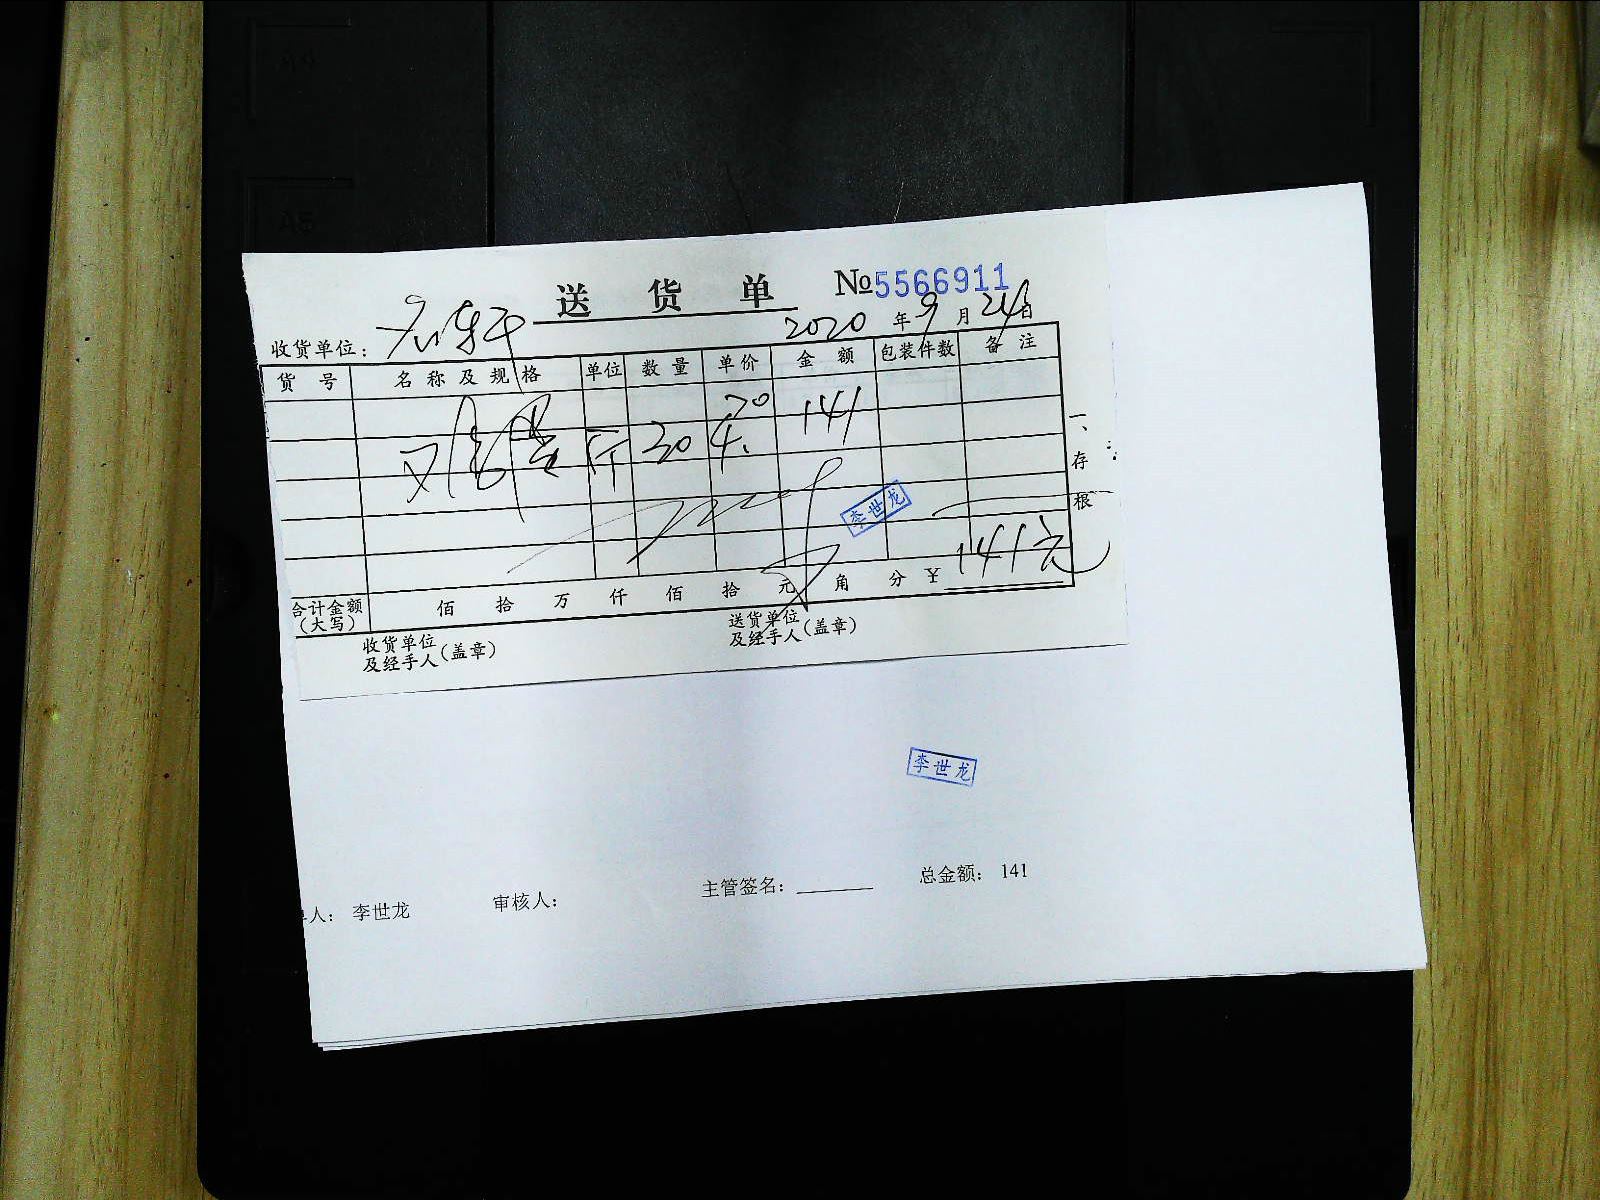 送货单 №5566911
收货单位： 2020年9月24日
货号 名称及规格 单位 数量 单价 金额 包装件数 备注
斤 30 4.70 141
一、存根
李世龙
合计金额（大写） 佰 拾 万 仟 佰 拾 元 角 分 ¥ 141元
收货单位及经手人（盖章） 送货单位及经手人（盖章）
李世龙
人： 李世龙 审核人： 主管签名： 总金额： 141